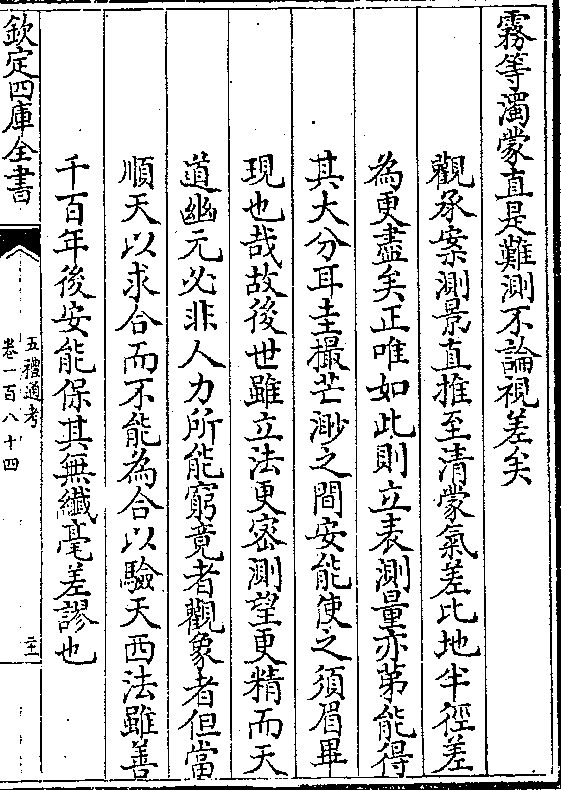 霧等濁蒙直是難測不論視差矣
觀承案測景直推至清蒙氣差比地半徑差
為更盡矣正唯如此則立表測量亦第能得
其大分耳圭撮芒渺之間安能使之須眉畢
現也哉故後世雖立法更密測望更精而天
道幽元必非人力所能窮竟者觀象者但當
順天以求合而不能為合以驗天西法雖善
千百年後安能保其無纖毫差謬也
欽定四庫全書
五禮通考
卷一百八十四
二十